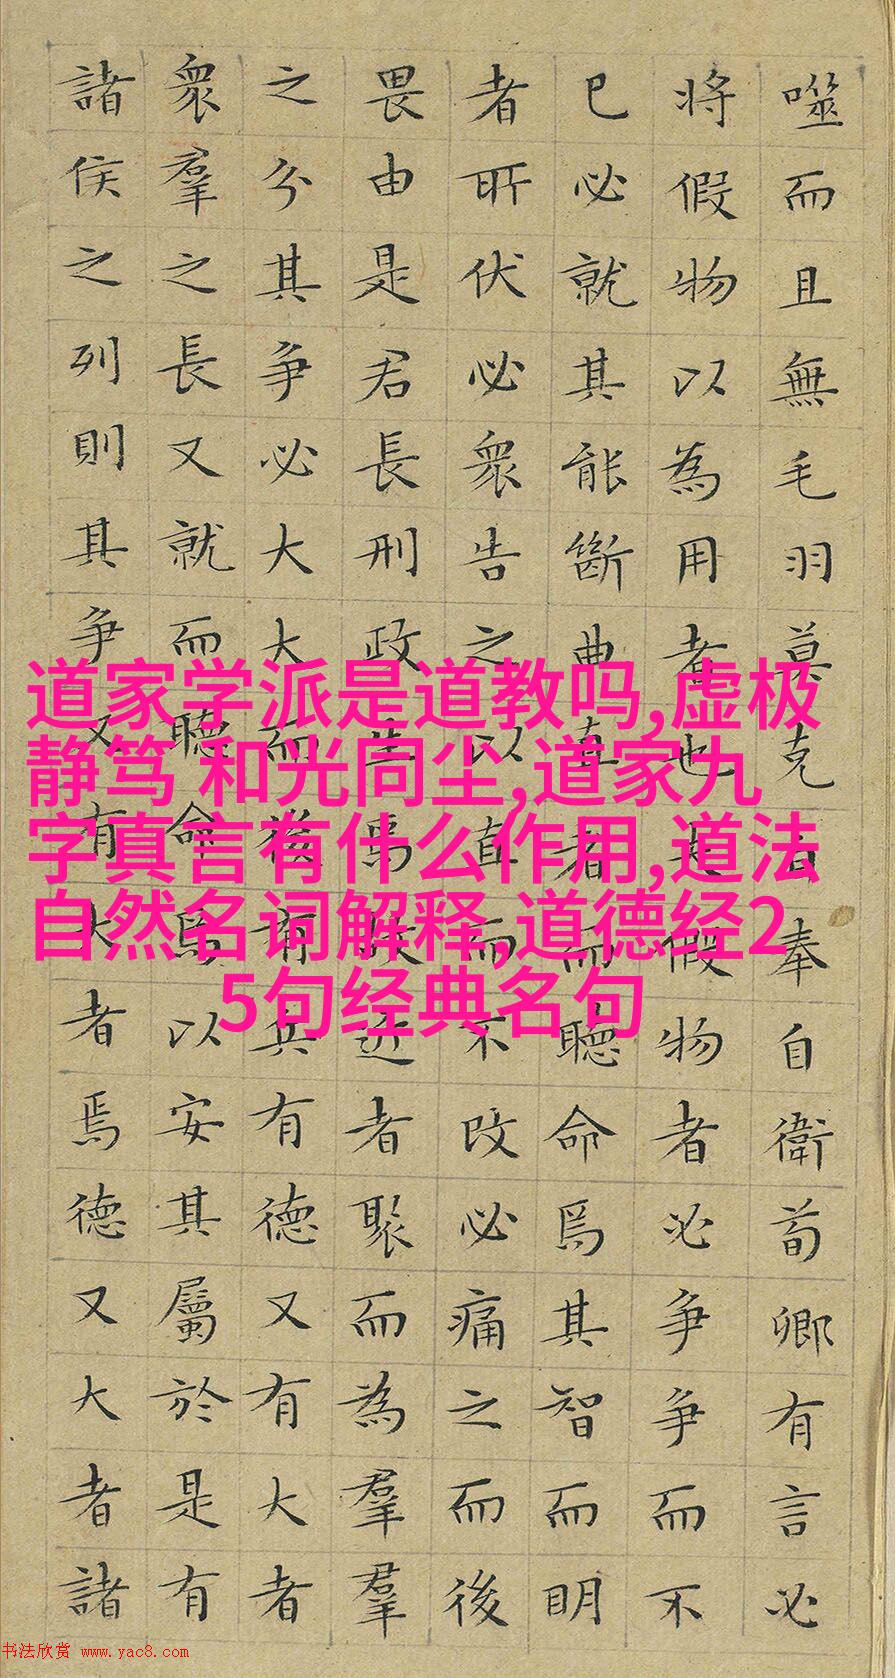 噬而且無毛羽莫克自奉自衛荀卿有言必
将假物以為用者也夫假物者必争争而不
已必就其能斷曲直者而聽命焉其智而明
者所伏必衆告之以直而不改必痛之而後
畏由是君長刑政生焉故近者聚而為羣羣
之分其争必大大而後有兵有德又有大者
衆羣之長又就而聽命焉以安其屬於是有
諸侯之列則其争又有大者焉德又大者諸
道家学派是道教吗,虚极
静笃 和光同尘,道家九
字真言有什么作用,道法
自然名词解释,道德经2
5句经典名句
书法欣赏 www.yac8.com